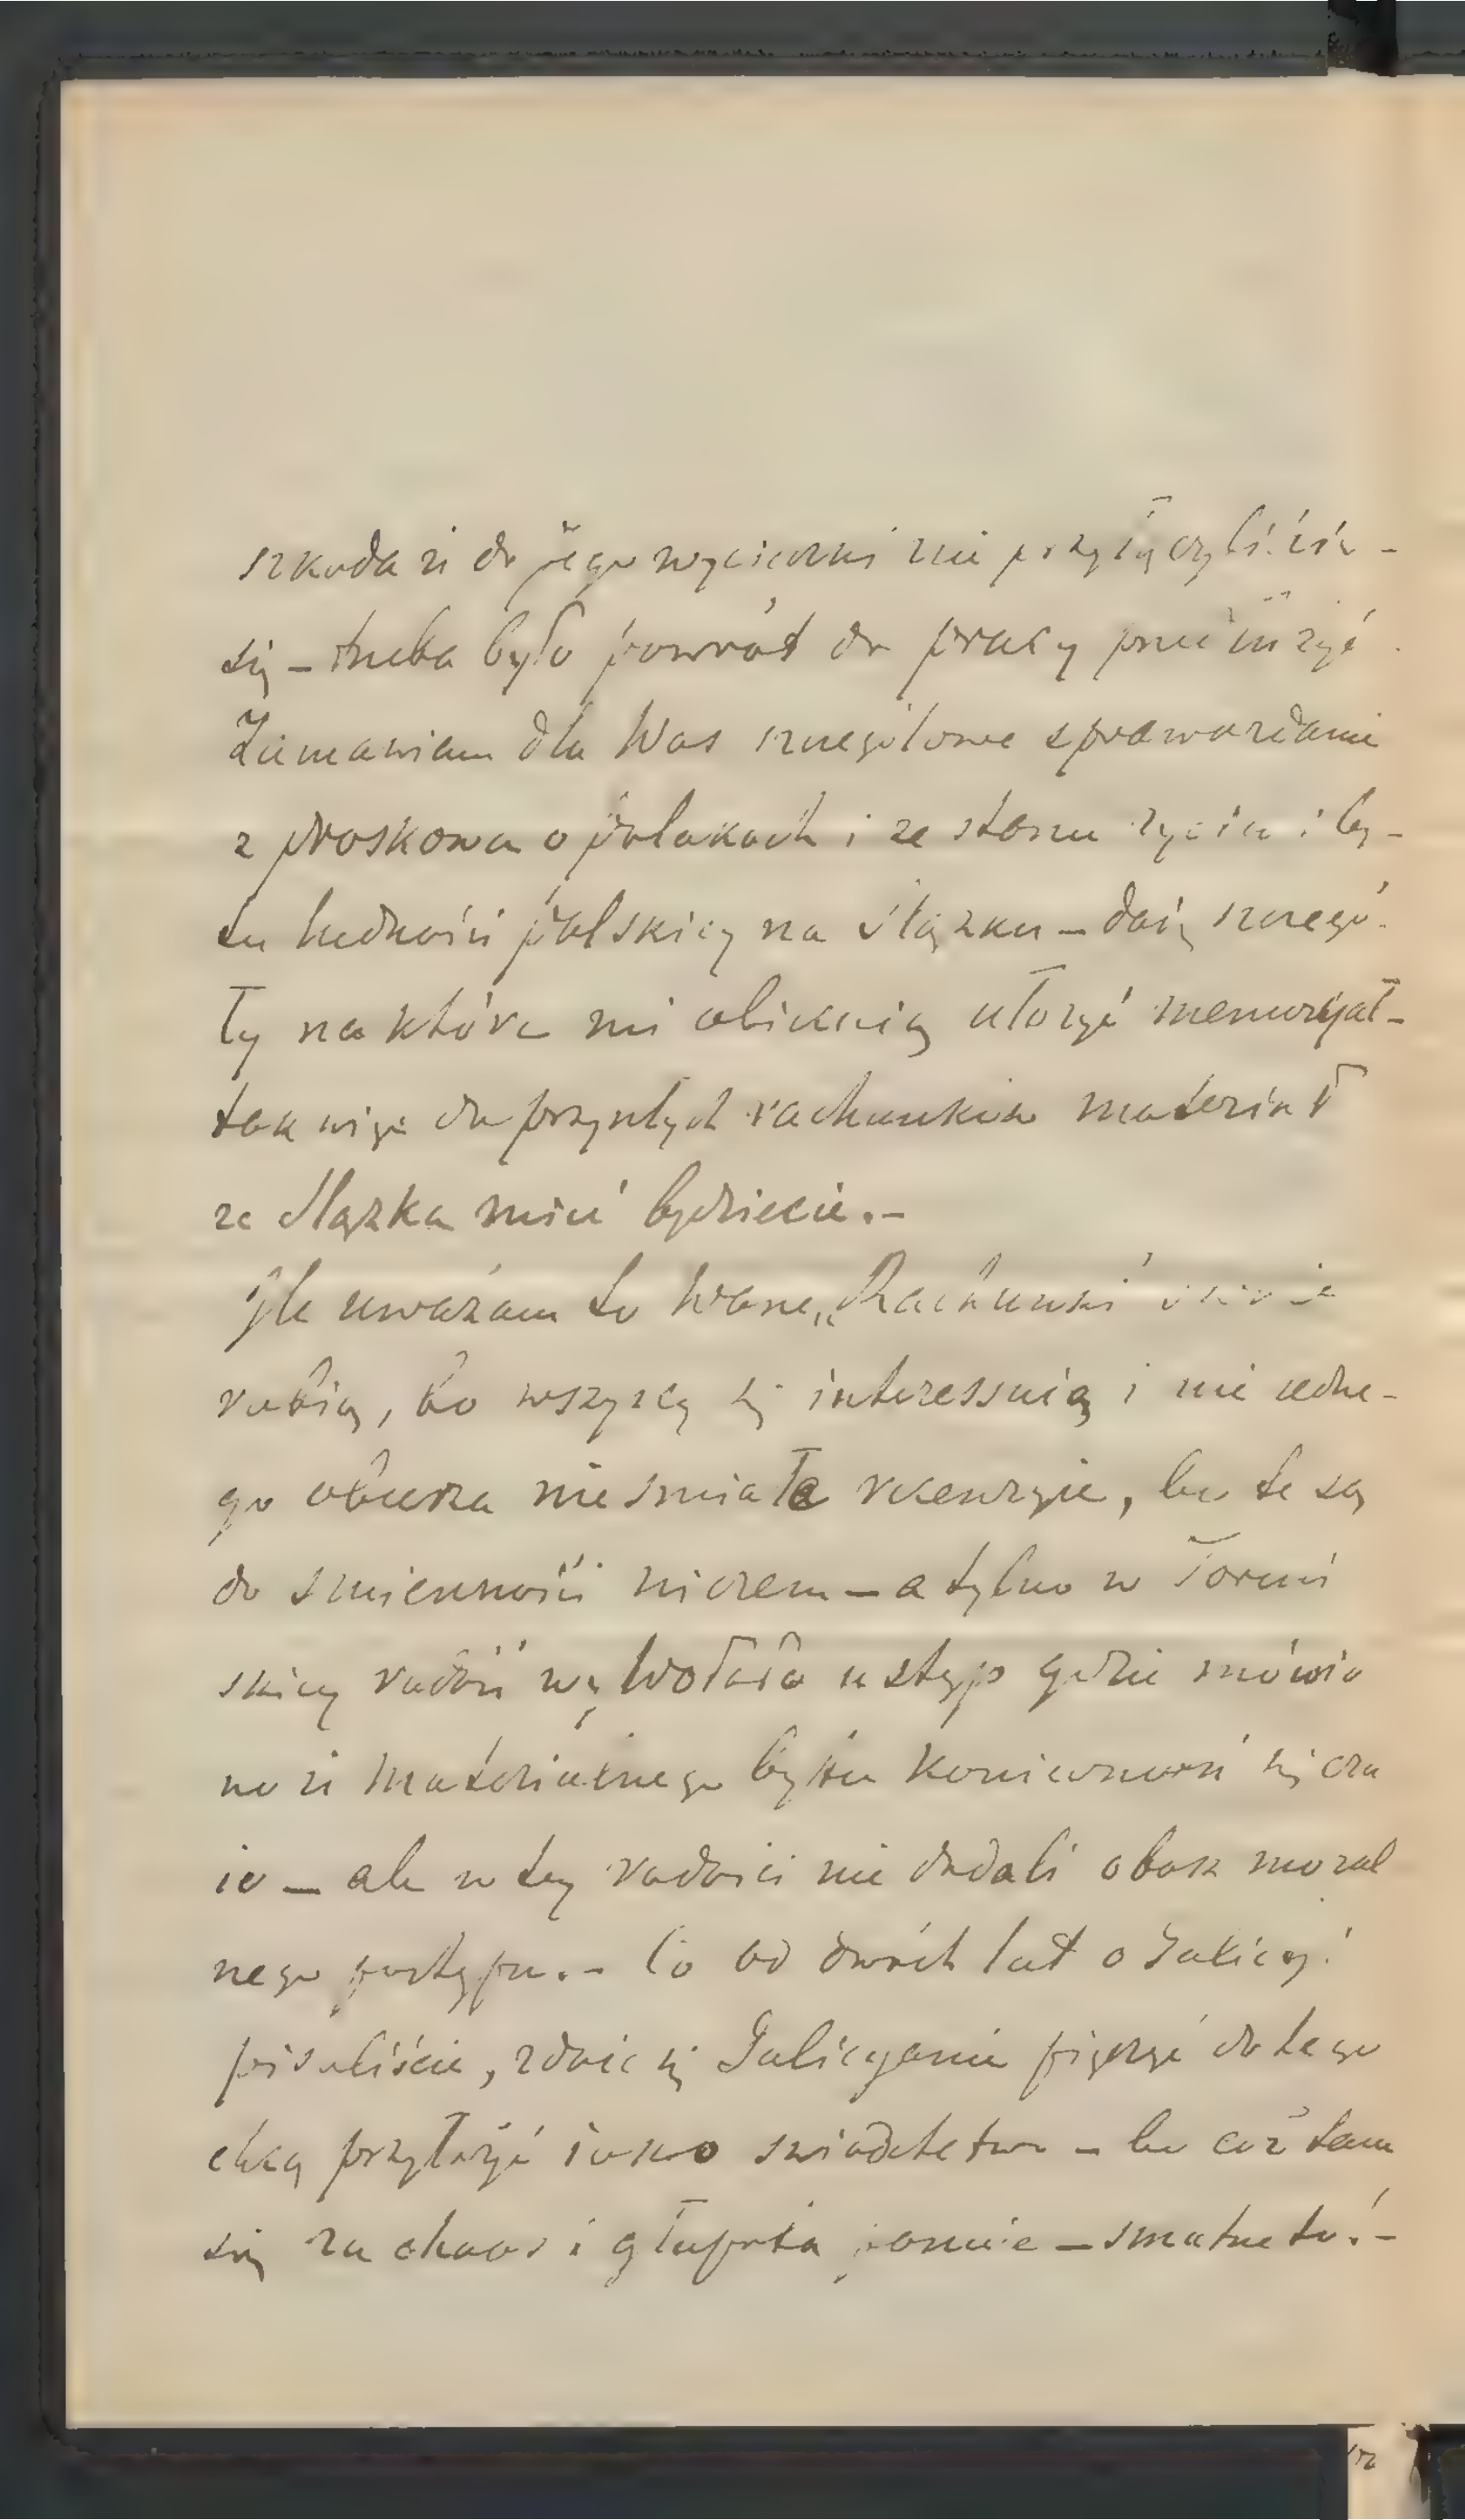 szkoda że do jego wycieczki nie przyłączyliście -
się - trzeba było powrót do pracy
Zamawiam dla Was szczegółowe sprawozdanie
z Proskowa o polakach i ze stanu życia i by-
tu ludności polskiey na Ślązku - daię szczegó-
ły na które mi obiecuią ułożyć memoryał -
tak więc do przyszłych rachunków materiał
ze Slązka mieć będziecie. -
Ile uważam to Wasze „Rachunki
robią, bo wszyscy się interessuią i nie iedne-
go oburza nieśmiałe recenzyie, bo te są
do sumienności niczem - a tylko w Toruń
skiey radość wywołało ustęp gdzie mówio
no że materialnego bytu konieczność się czu
ie - ale w tey radości nie dodali obok moral
nego postępu. - Co od dwóch lat o Galicyi
pisaliście, zdaie się Galicyanie pięczęć do tego
chcą przyłożyć iako swiadectwo - bo cóż tam
się za chaos i głupota - smutne to! -